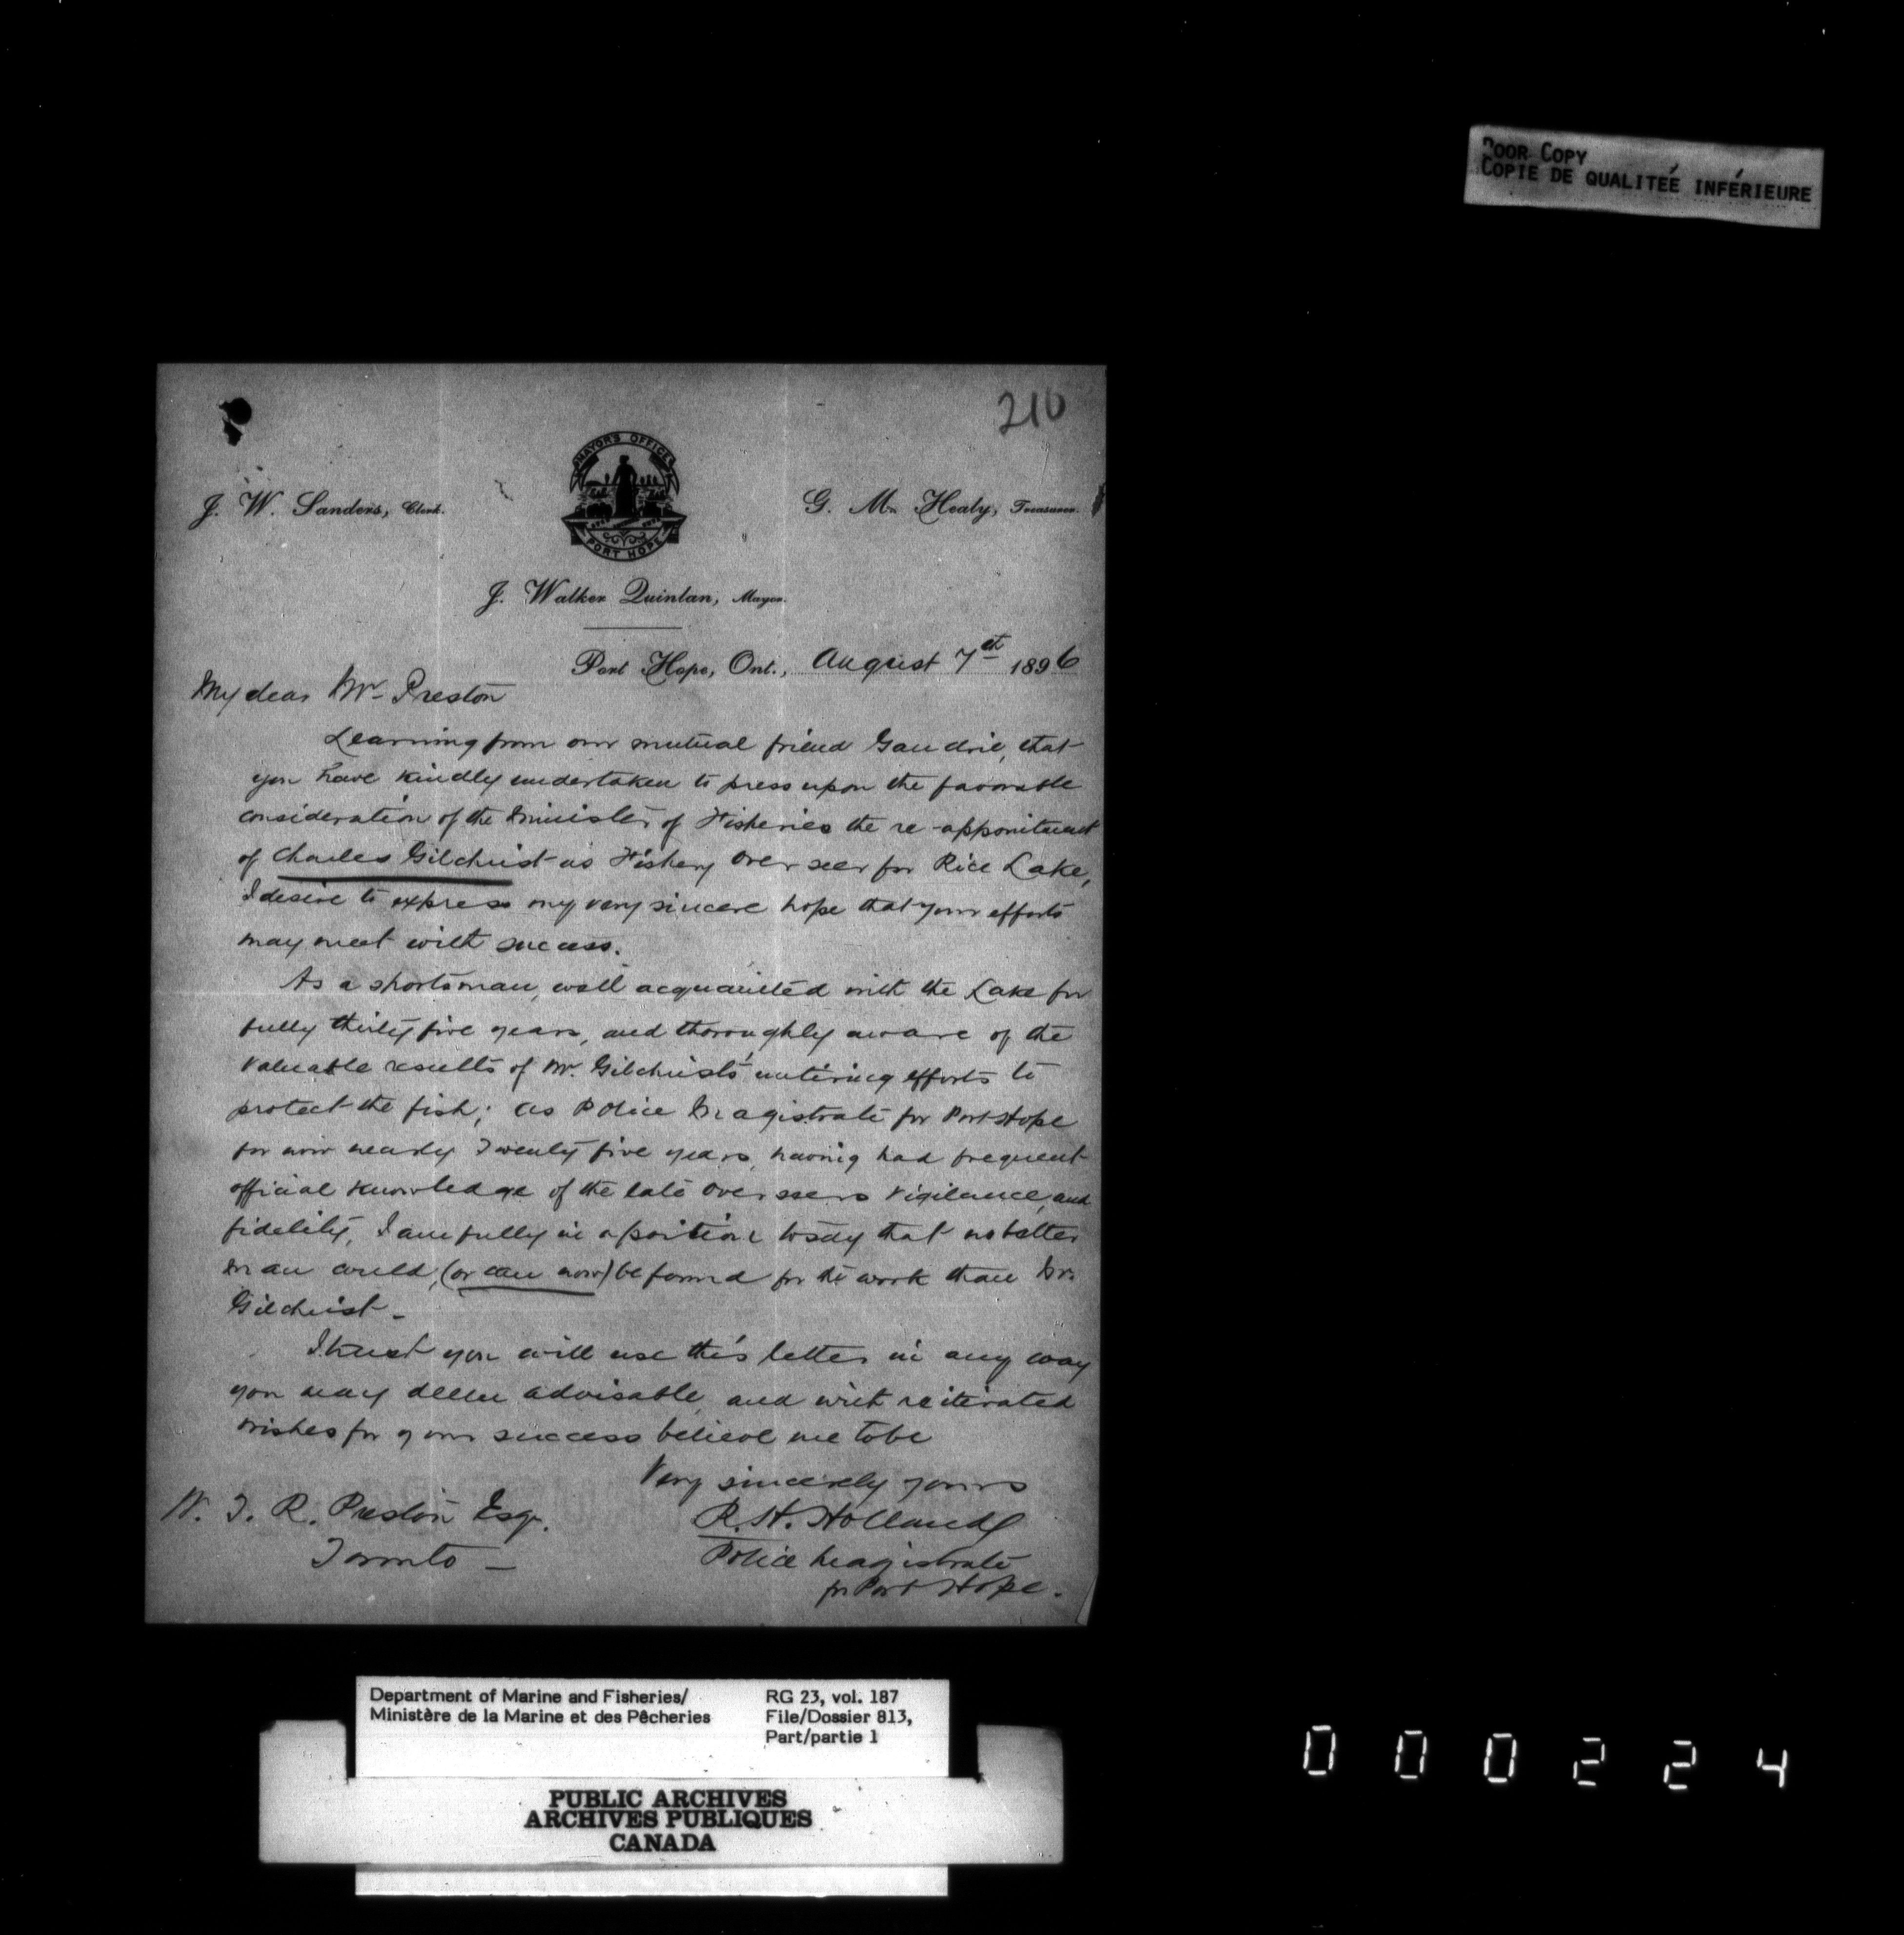 POOR COPY
COPIE DE QUALITEÉ INFÉRIEURE
210
MAYOR'S OFFICE
PORT HOPE
J. W. Sanders, Clerk.
G. M. Healy, Treasurer.
J. Walker Quinlan, Mayor.
Port Hope, Ont., August 7th 1896
My dear Mr Preston
Learning from our mutual friend that
you have kindly undertaken to press upon the favorable
consideration of the Minister of Fisheries the re-appointment
of Charles Gilchrist as Fishery Overseer for Rice Lake,
I desire to express my very sincere hope that your efforts
may meet with success.
As a sportsman, well acquainted with the Lake for
fully thirty five years, and thoroughly aware of the
valuable results of Mr. Gilchrist's untiring efforts to
protect the fish; as Police Magistrate for Port Hope
for now nearly Twenty five years, having had frequent
official knowledge of the late Overseers vigilance, and
fidelity, I am fully in a position to say that no better
man could, (or can now) be found for the work than Mr.
Gilchrist -
I trust you will use this letter in any way
you may deem advisable, and with reiterated
wishes for your success believe me to be
Very sincerely yours
W. T. R. Preston Esqr.
R. H. Holland
Toronto -
Police Magistrate
for Port Hope.
Department of Marine and Fisheries/
Ministère de la Marine et des Pêcheries
RG 23, vol. 187
File/Dossier 813,
Part/partie 1
PUBLIC ARCHIVES
ARCHIVES PUBLIQUES
CANADA
000224